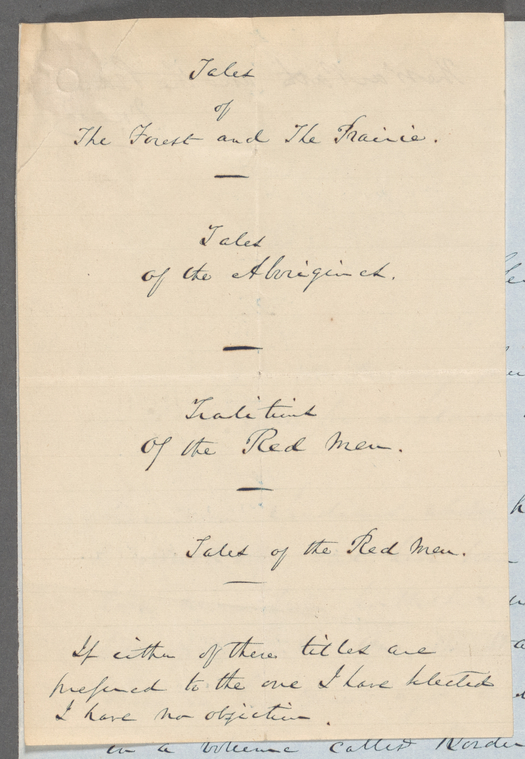 Tales
of
The Forest and The Prairie.
Tales
of the Aborigines.
Traditions
Of the Red Men.
Tales of the Red Men.
If either of these titles are
prefered to the one I have selected
I have no objection.
in a volume called Border